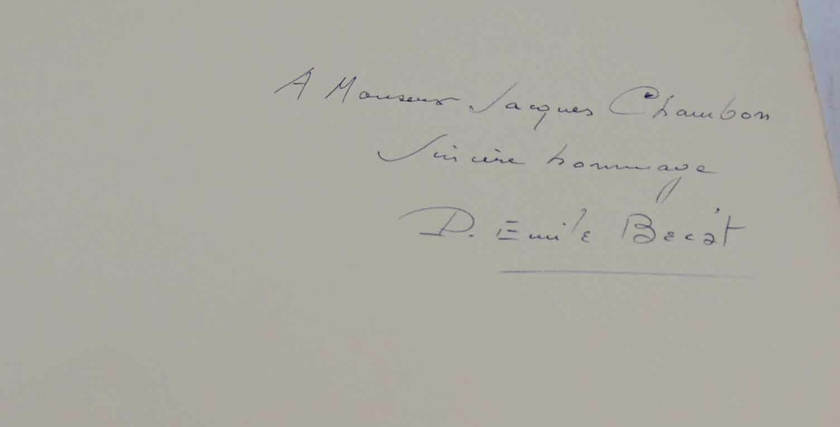 A Monsieur Jacques Chambon
Sincère hommage
P. Emile Bécat